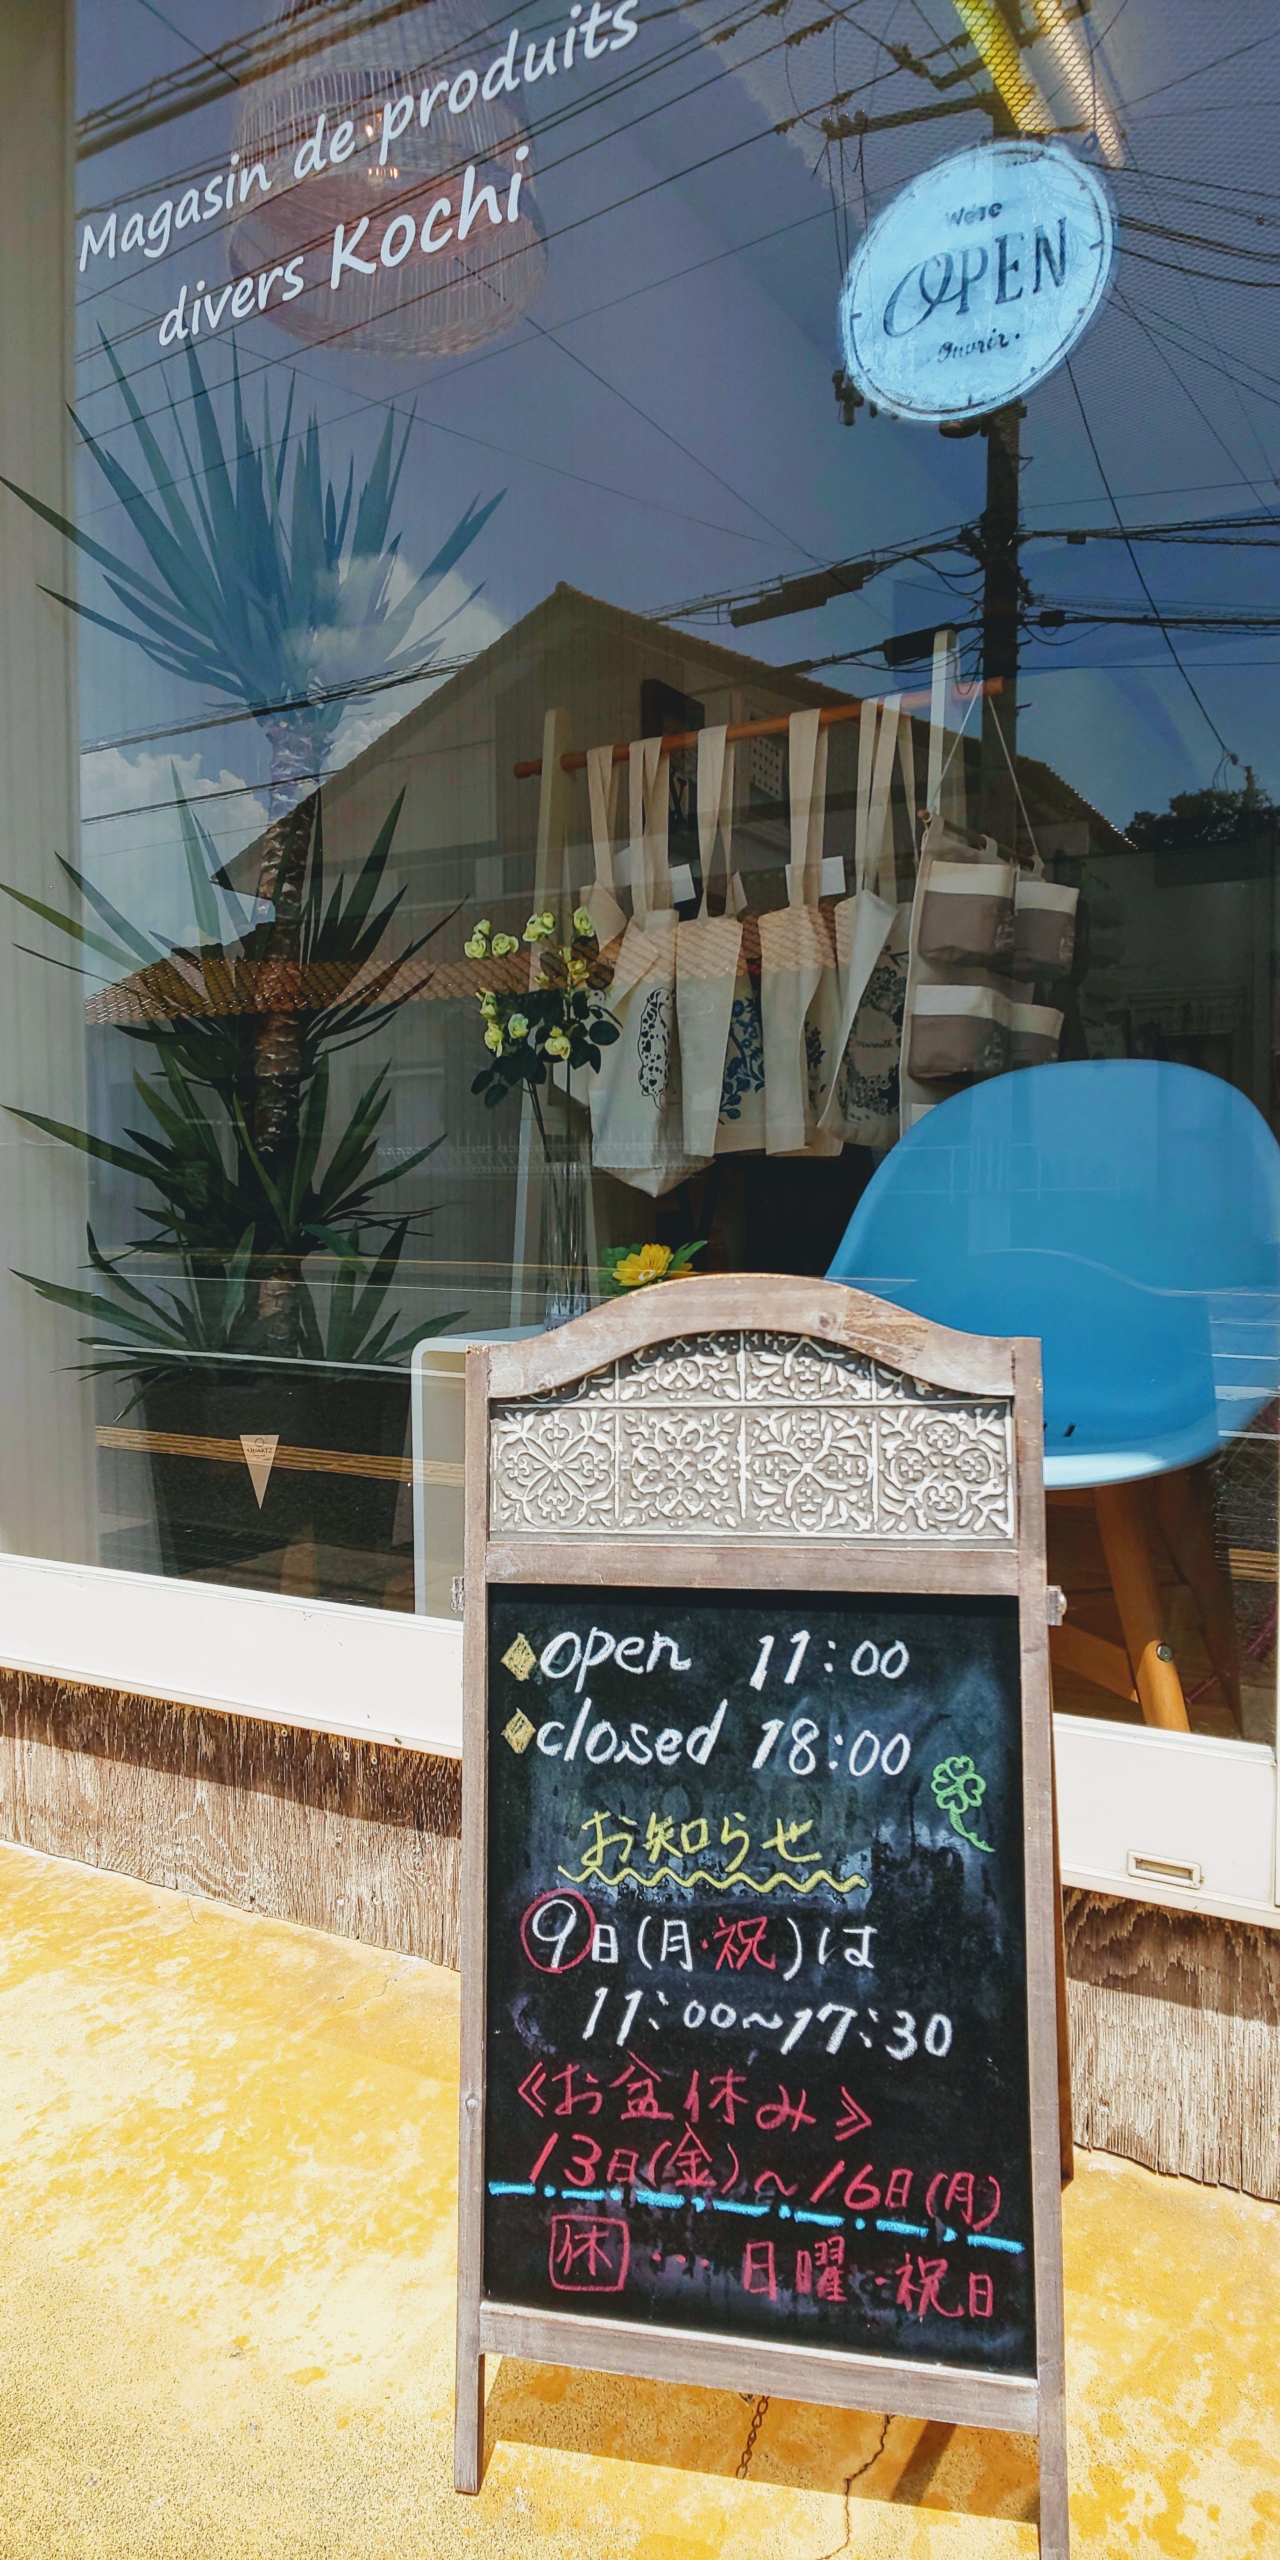 Magasin de produits
divers Kochi
We're
OPEN
Ouvrir.
QUARTZ
open 11:00
closed 18:00
お知らせ
9日(月・祝)は
11:00~17:30
《お盆休み》
13日(金)~16日(月)
休 … 日曜・祝日